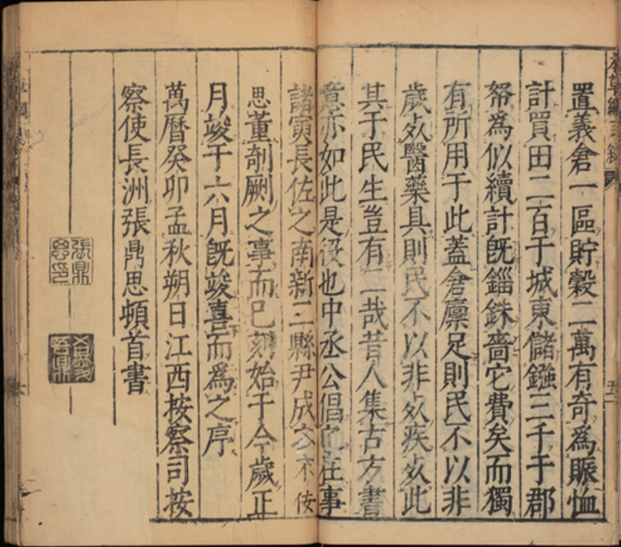 置義倉一區貯糓二萬有奇爲賑恤
計買田二百于城東儲鏹三千于郡
帑爲似續計旣錙銖嗇它費矣而獨
有所用于此蓋倉廩足則民不以非
歲㱙醫藥具則民不以非㱙疾㱙此
其于民生豈有二哉昔人集古方書
意亦如此是役也中丞公倡之在事
諸寅長佐之南新二縣尹成
思董剞劂之事而已刻始于今歲正
月竣于六月旣竣喜而爲之序
萬曆癸卯孟秋朔日江西按察司按
察使長洲張鼎思頓首書
張鼎思印